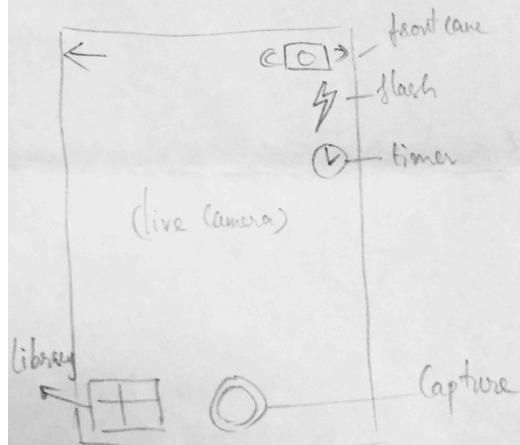 front came
flash
timer
(live Camera)
library
Capture